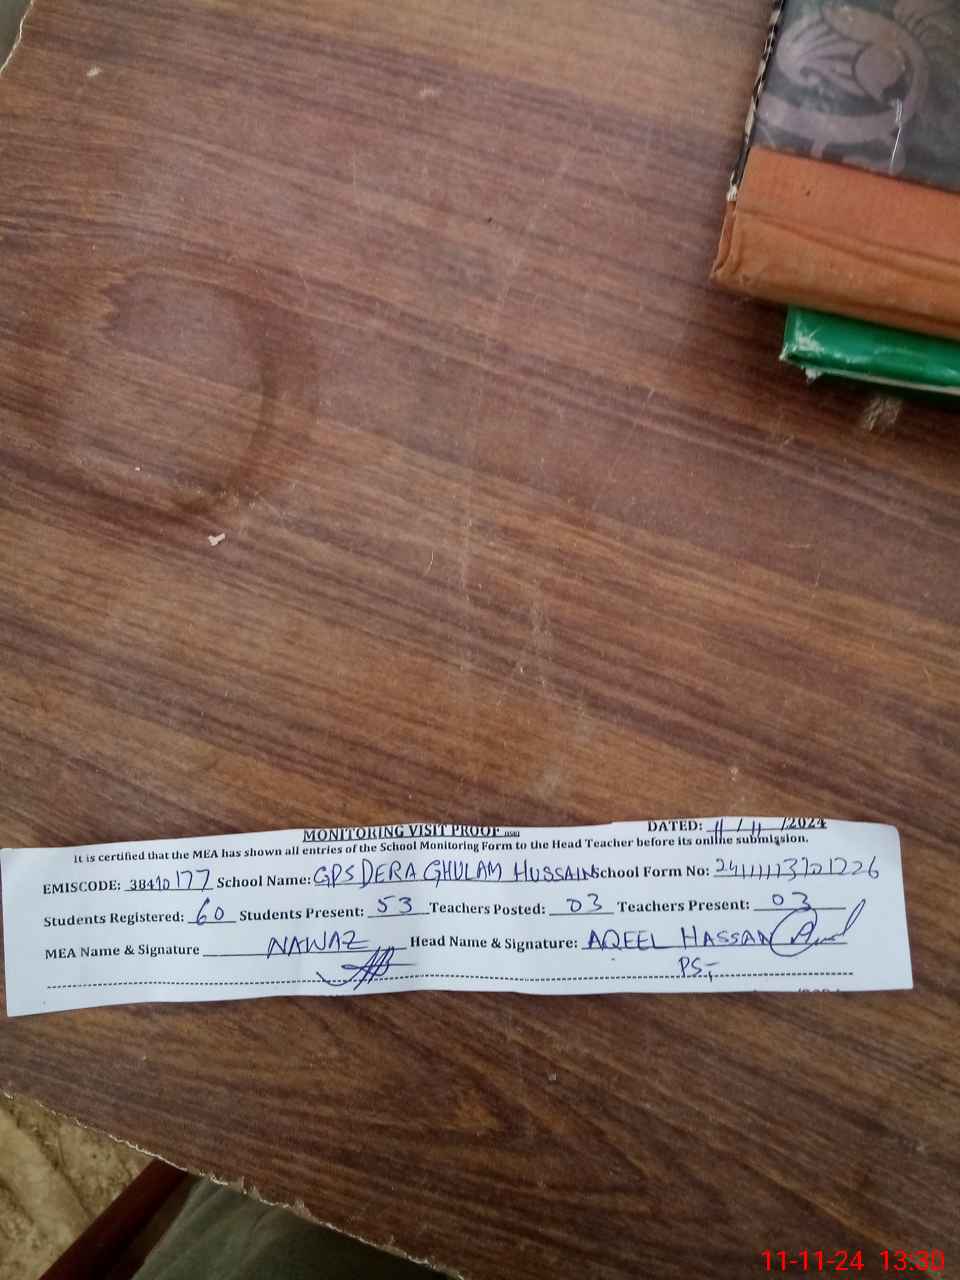 MONITORING VISIT PROOF DATED: 11/11/2024
It is certified that the MEA has shown all entries of the School Monitoring Form to the Head Teacher before its online submission.
EMISCODE: 38410177 School Name: GPS DERA GHULAM HUSSAIN School Form No:
Students Registered: 60 Students Present: 53 Teachers Posted: 03 Teachers Present: 03
MEA Name & Signature NAWAZ Head Name & Signature: AQEEL HASSAN
PST
11-11-24 13:30